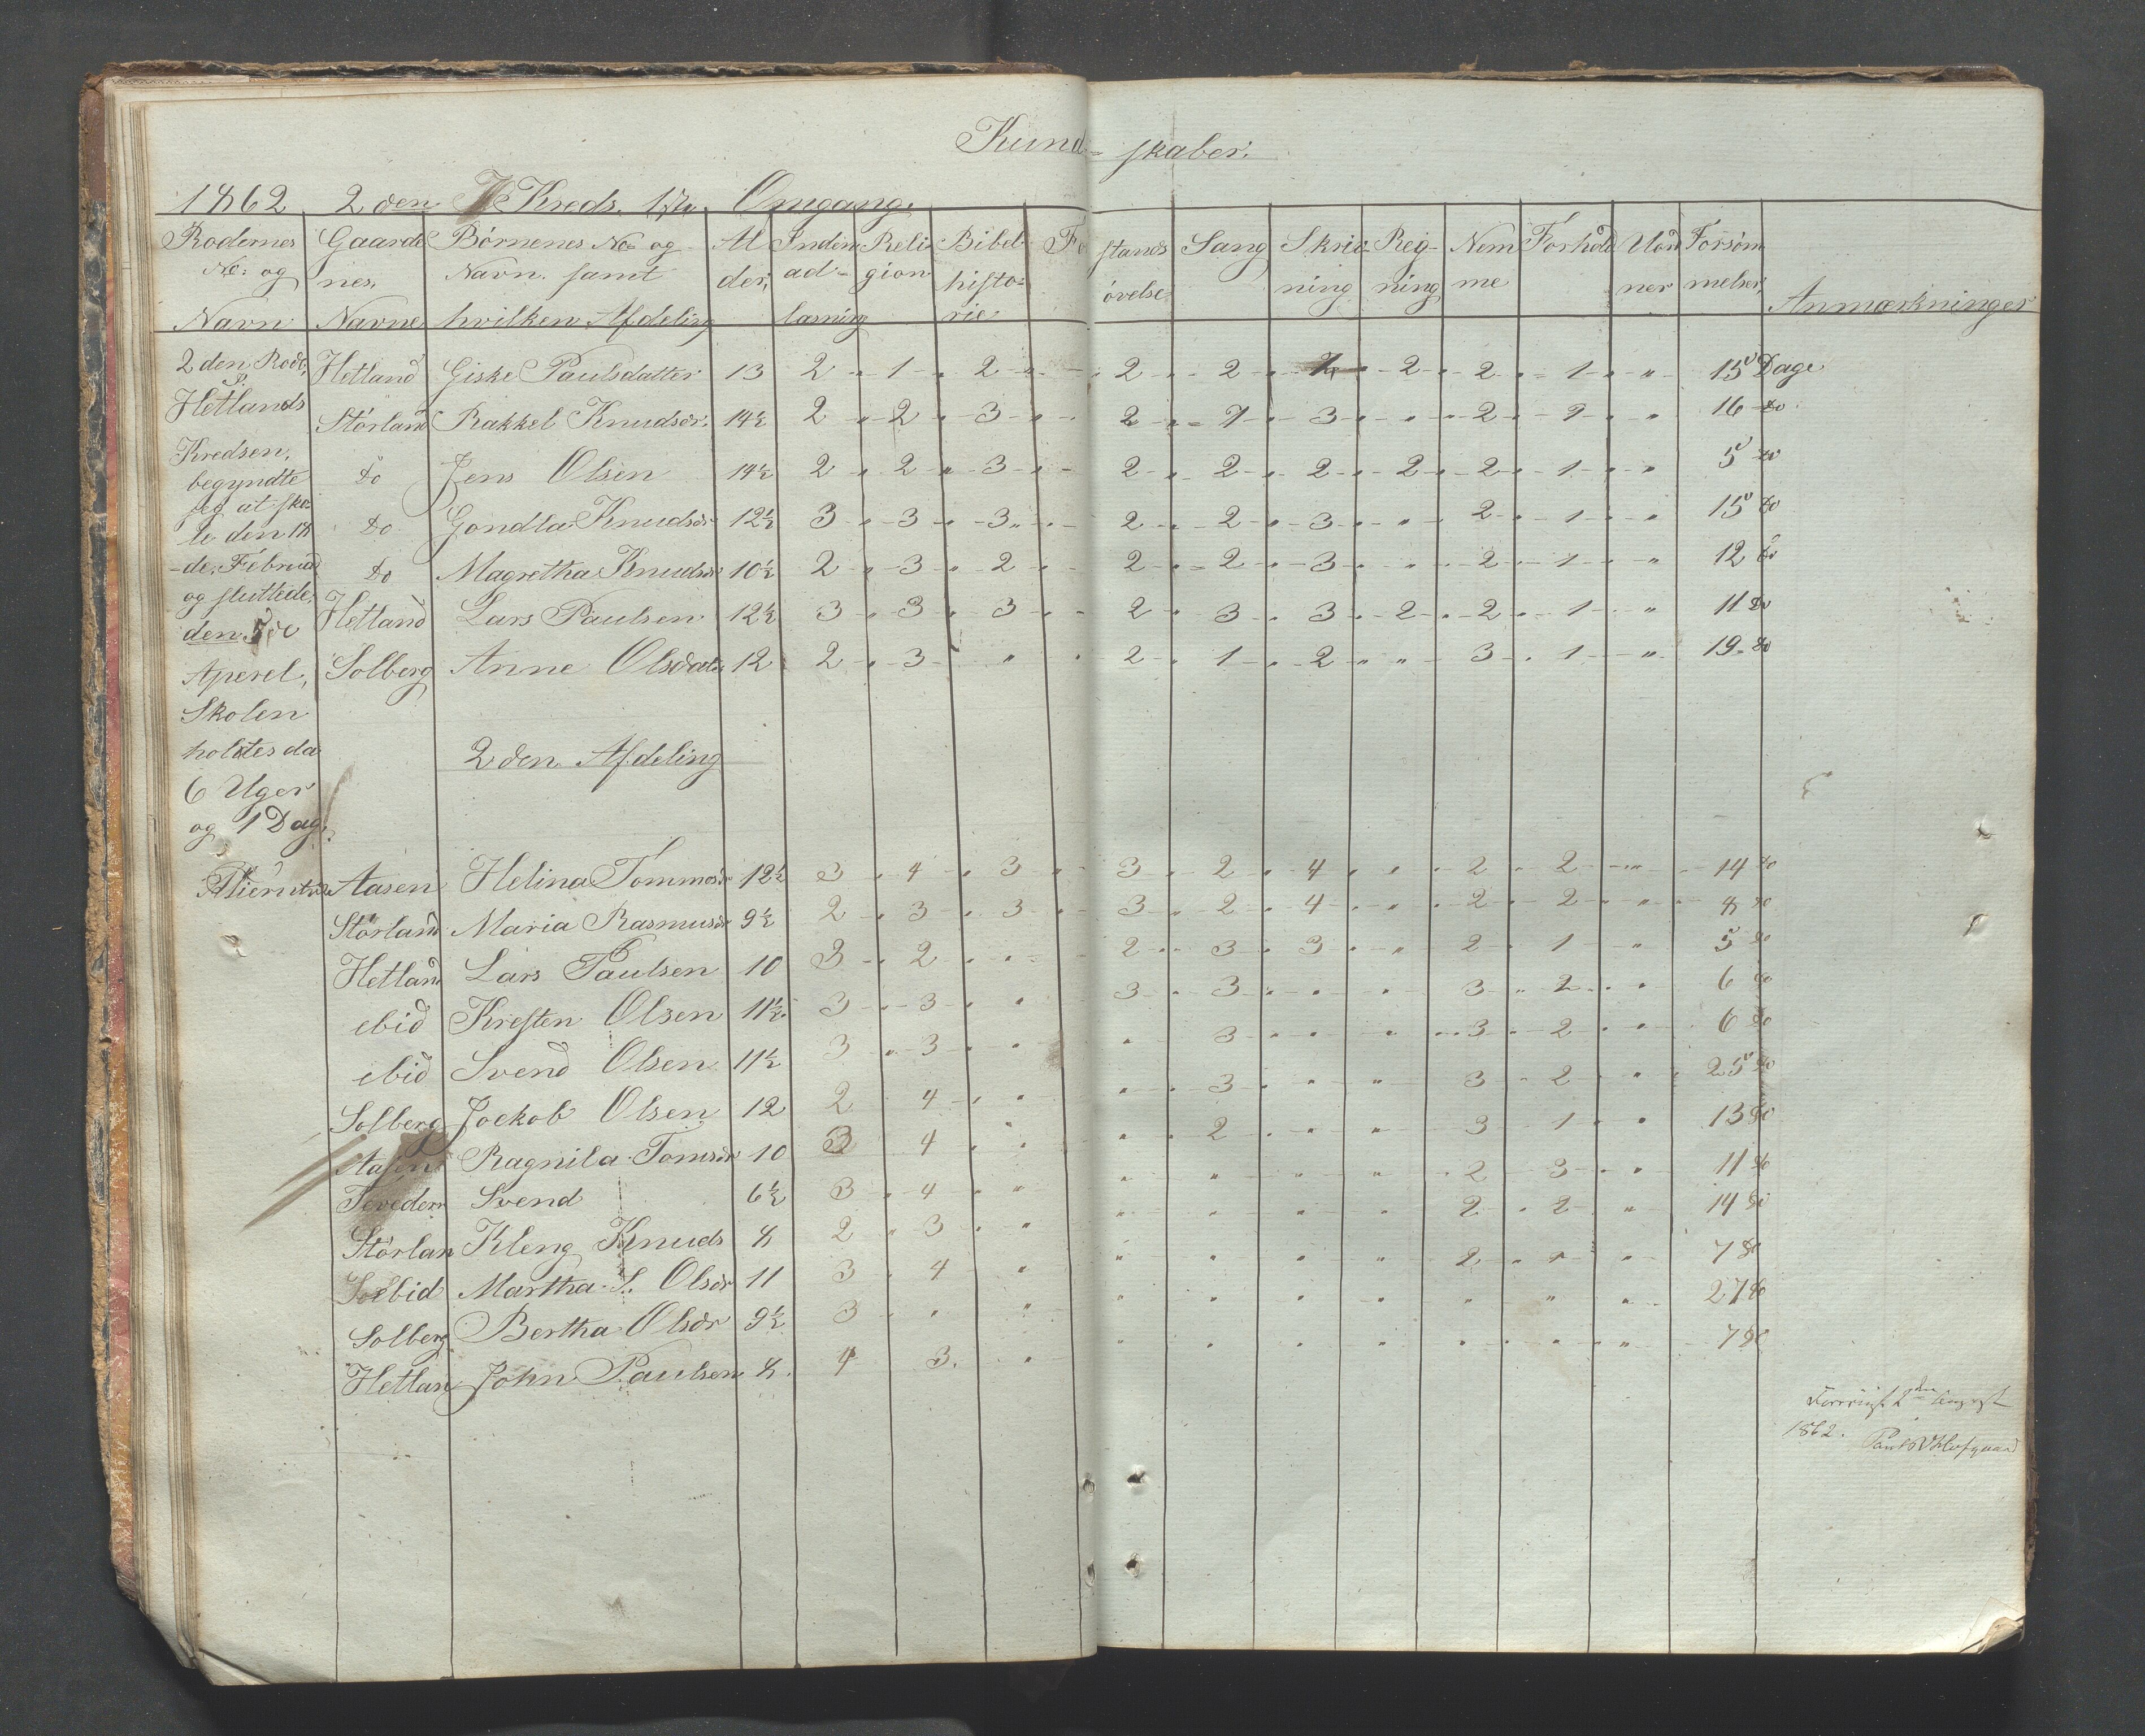 Kund- skaber.
1862 2den Kreds. 1ste Omgang.
Rodernes No: og Navn | Gaardenes, Navne | Børnenes No og Navn samt hvilken Afdeling | Alder, | Indenadlæsning | Religion | Bibelhistorie | Fo standsøvelse | Sang | Skrivning | Regning | Nemme | Forhold | Udoner | Forsømmelser, | Anmærkninger
2den Rode,
Hetlands
Kredsen,
begyndte
jeg at sko-
le den 18
-de, Februar
og sluttede,
den 5de
Aperel,
Skolen
holdtes da
6 Uger
og 1 Dag,
Hetland Giske Paulsdatter 13 2 " 1 " 2 " 2 " 2 " 2 " 2 " 1 " " 15 Dage
Störland Rakkel Knudsdr. 14½ 2 " 2 " 3 " 2 " 3 " " 2 " " 16 do
do Jens Olsen 14½ 2 " 2 " 3 " 2 " 2 " 2 " 2 " 2 " 1 " " 5 do
do Gondla Knudsdr 12½ 3 " 3 " 3 " 2 " 2 " 3 " " 2 " 1 " " 15 do
do Magretha Knudsdr 10½ 2 " 3 " 2 " 2 " 2 " 3 " " 2 " 1 " " 12 do
Hetland Lars Paulsen 12½ 3 " 3 " 3 " 2 " 3 " 3 " 2 " 2 " 1 " " 11 do
Solberg Anne Olsdatr 12 2 " 3 " " 2 " 1 " 2 " " 3 " 1 " " 19 do
2den Afdeling
Aasen Helina Tommesdr 12½ 3 " 4 " 3 " 3 " 2 " 4 " " 2 " 2 " " 14 do
Störland Maria Rasmusdr 9½ 2 " 3 " 3 " 3 " 2 " 4 " " 2 " 2 " " 8 do
Hetland Lars Paulsen 10 3 " 2 " " 2 " 3 " 3 " " 2 " 1 " " 5 do
ibid Kresten Olsen 11½ 3 " 3 " " 3 " 3 " " " 3 " 2 " " 6 do
ibid Svend Olsen 11½ 3 " 3 " " " 3 " " " 3 " 2 " " 6 do
Solberg Jockob Olsen 12 2 4 " " " 3 " " " 3 " 2 " " 25 do
Aasen Ragnila Tomsdr 10 3 4 " " " 2 " " " 3 " 1 " " 13 do
Svend 6½ 3 " 4 " " " " " " 2 3 " " 11 do
Störlan Kleng Knuds 8 2 " 3 " " " " " " 2 " 2 " 14 do
ibid Martha S. Olsdr 11 3 " 4 " " " " " 2 " " " 7 do
Solberg Bertha Olsdr 9½ 3 " " " " " " " " " " 27 do
Hetlan John Paulsen 8. 4 3. " " " " " " " " 7 do
2den August
1862.